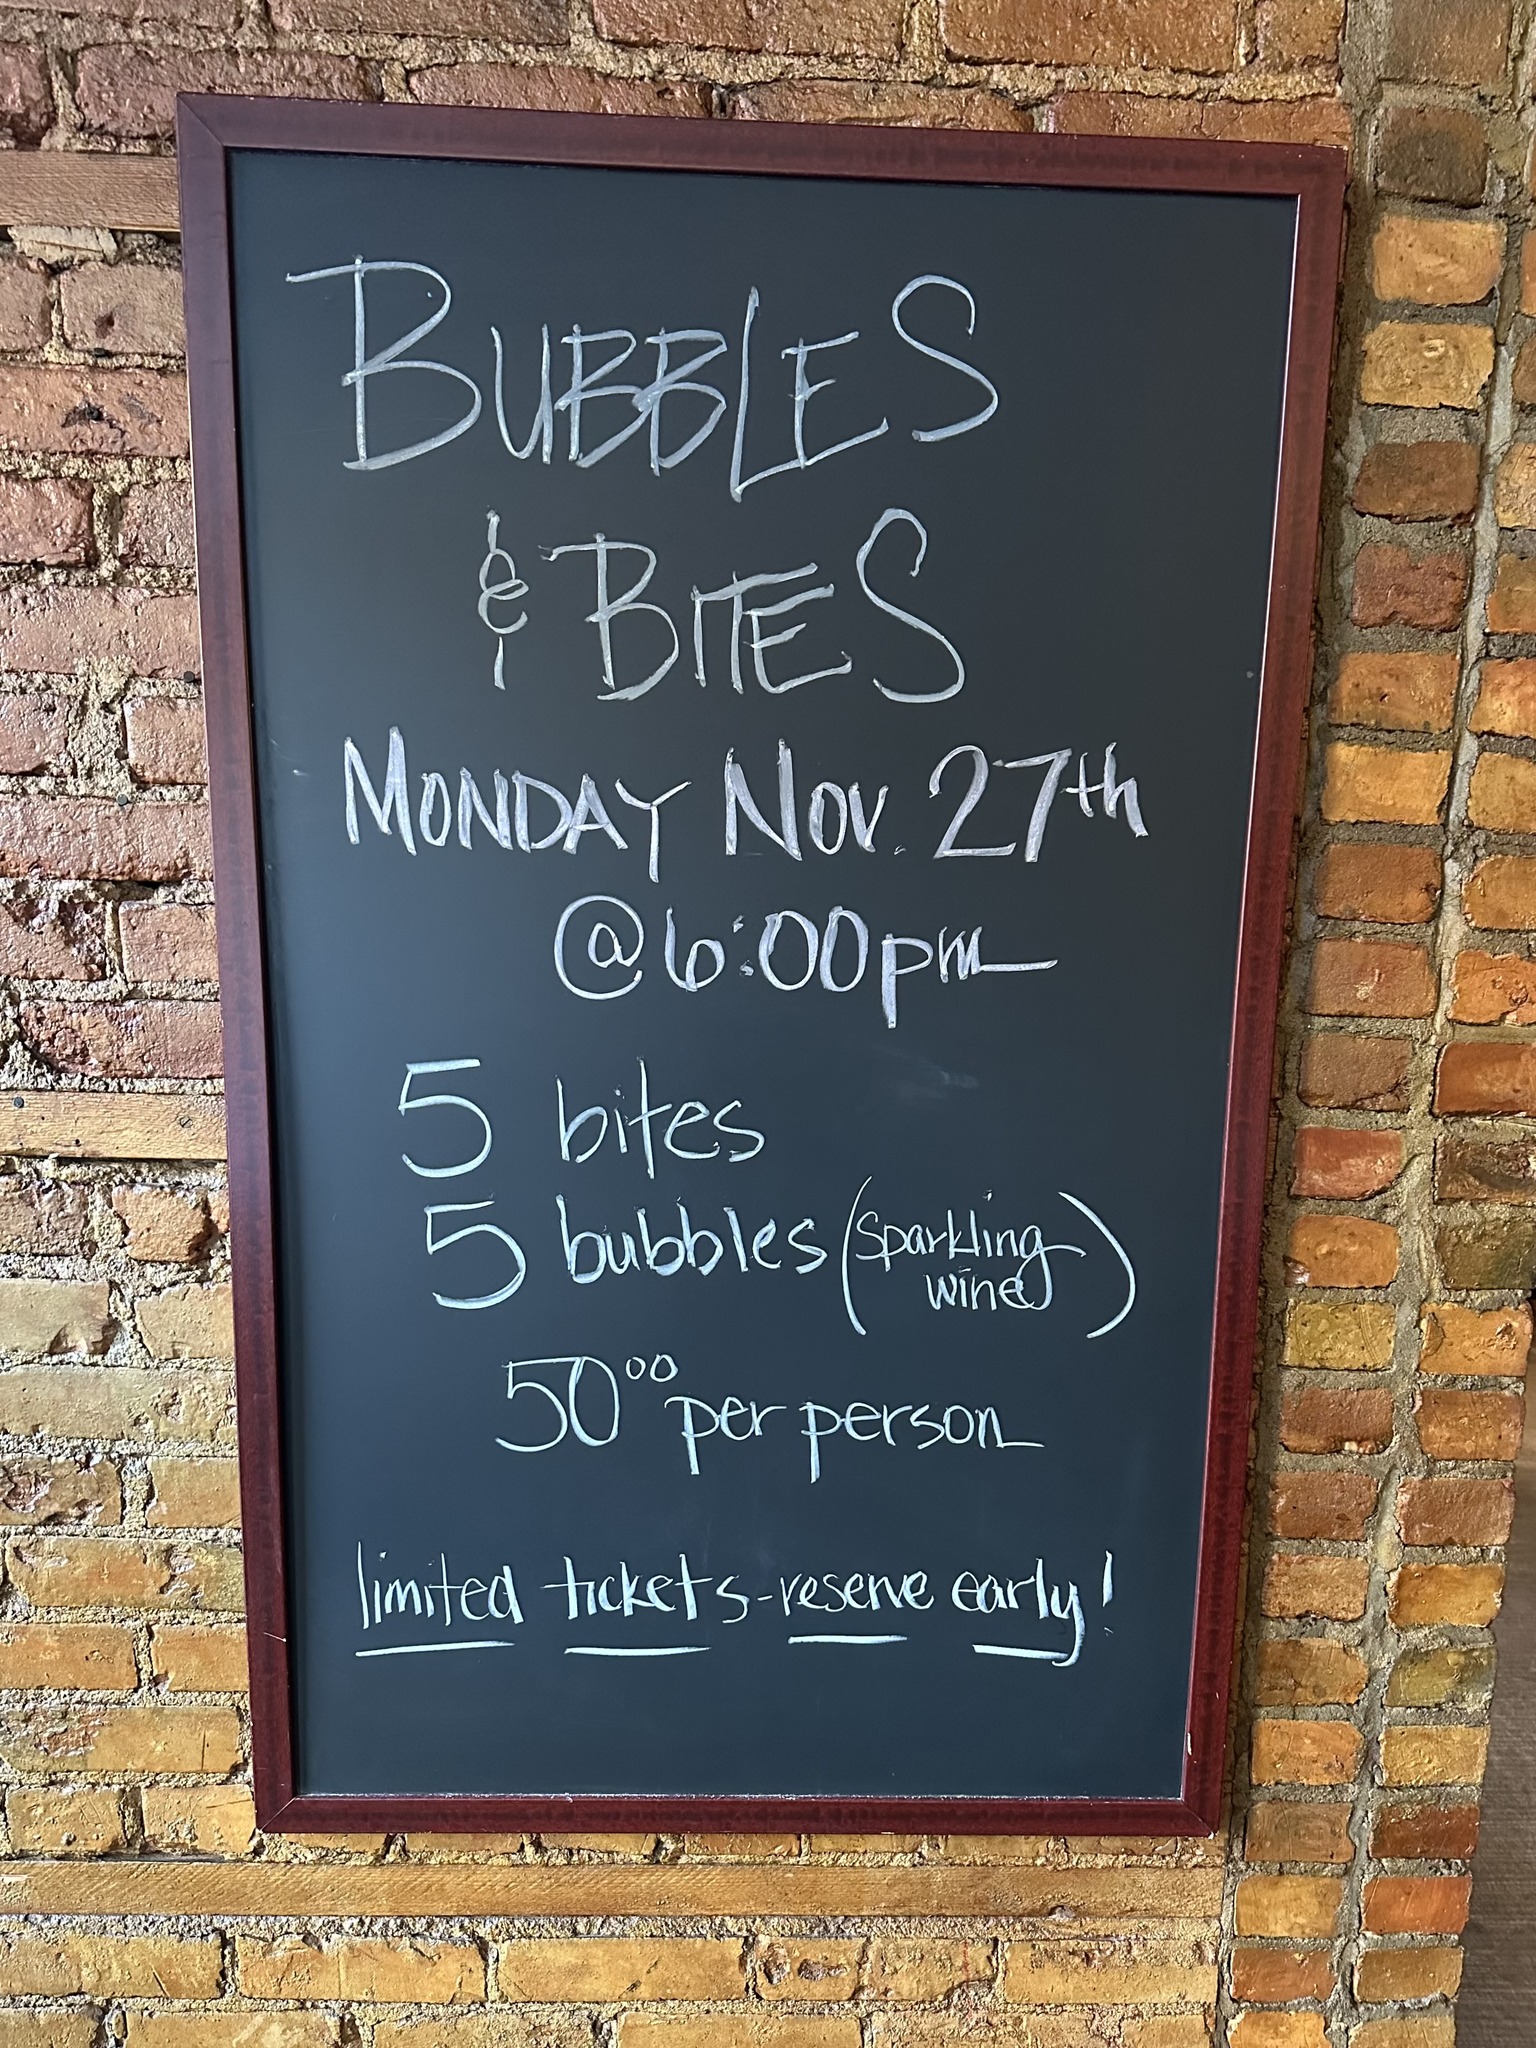 BUBBLES
& BITES
MONDAY NOV. 27th
@ 6:00pm
5 bites
5 bubbles (sparkling
wine)
50⁰⁰ per person
limited tickets - reserve early!